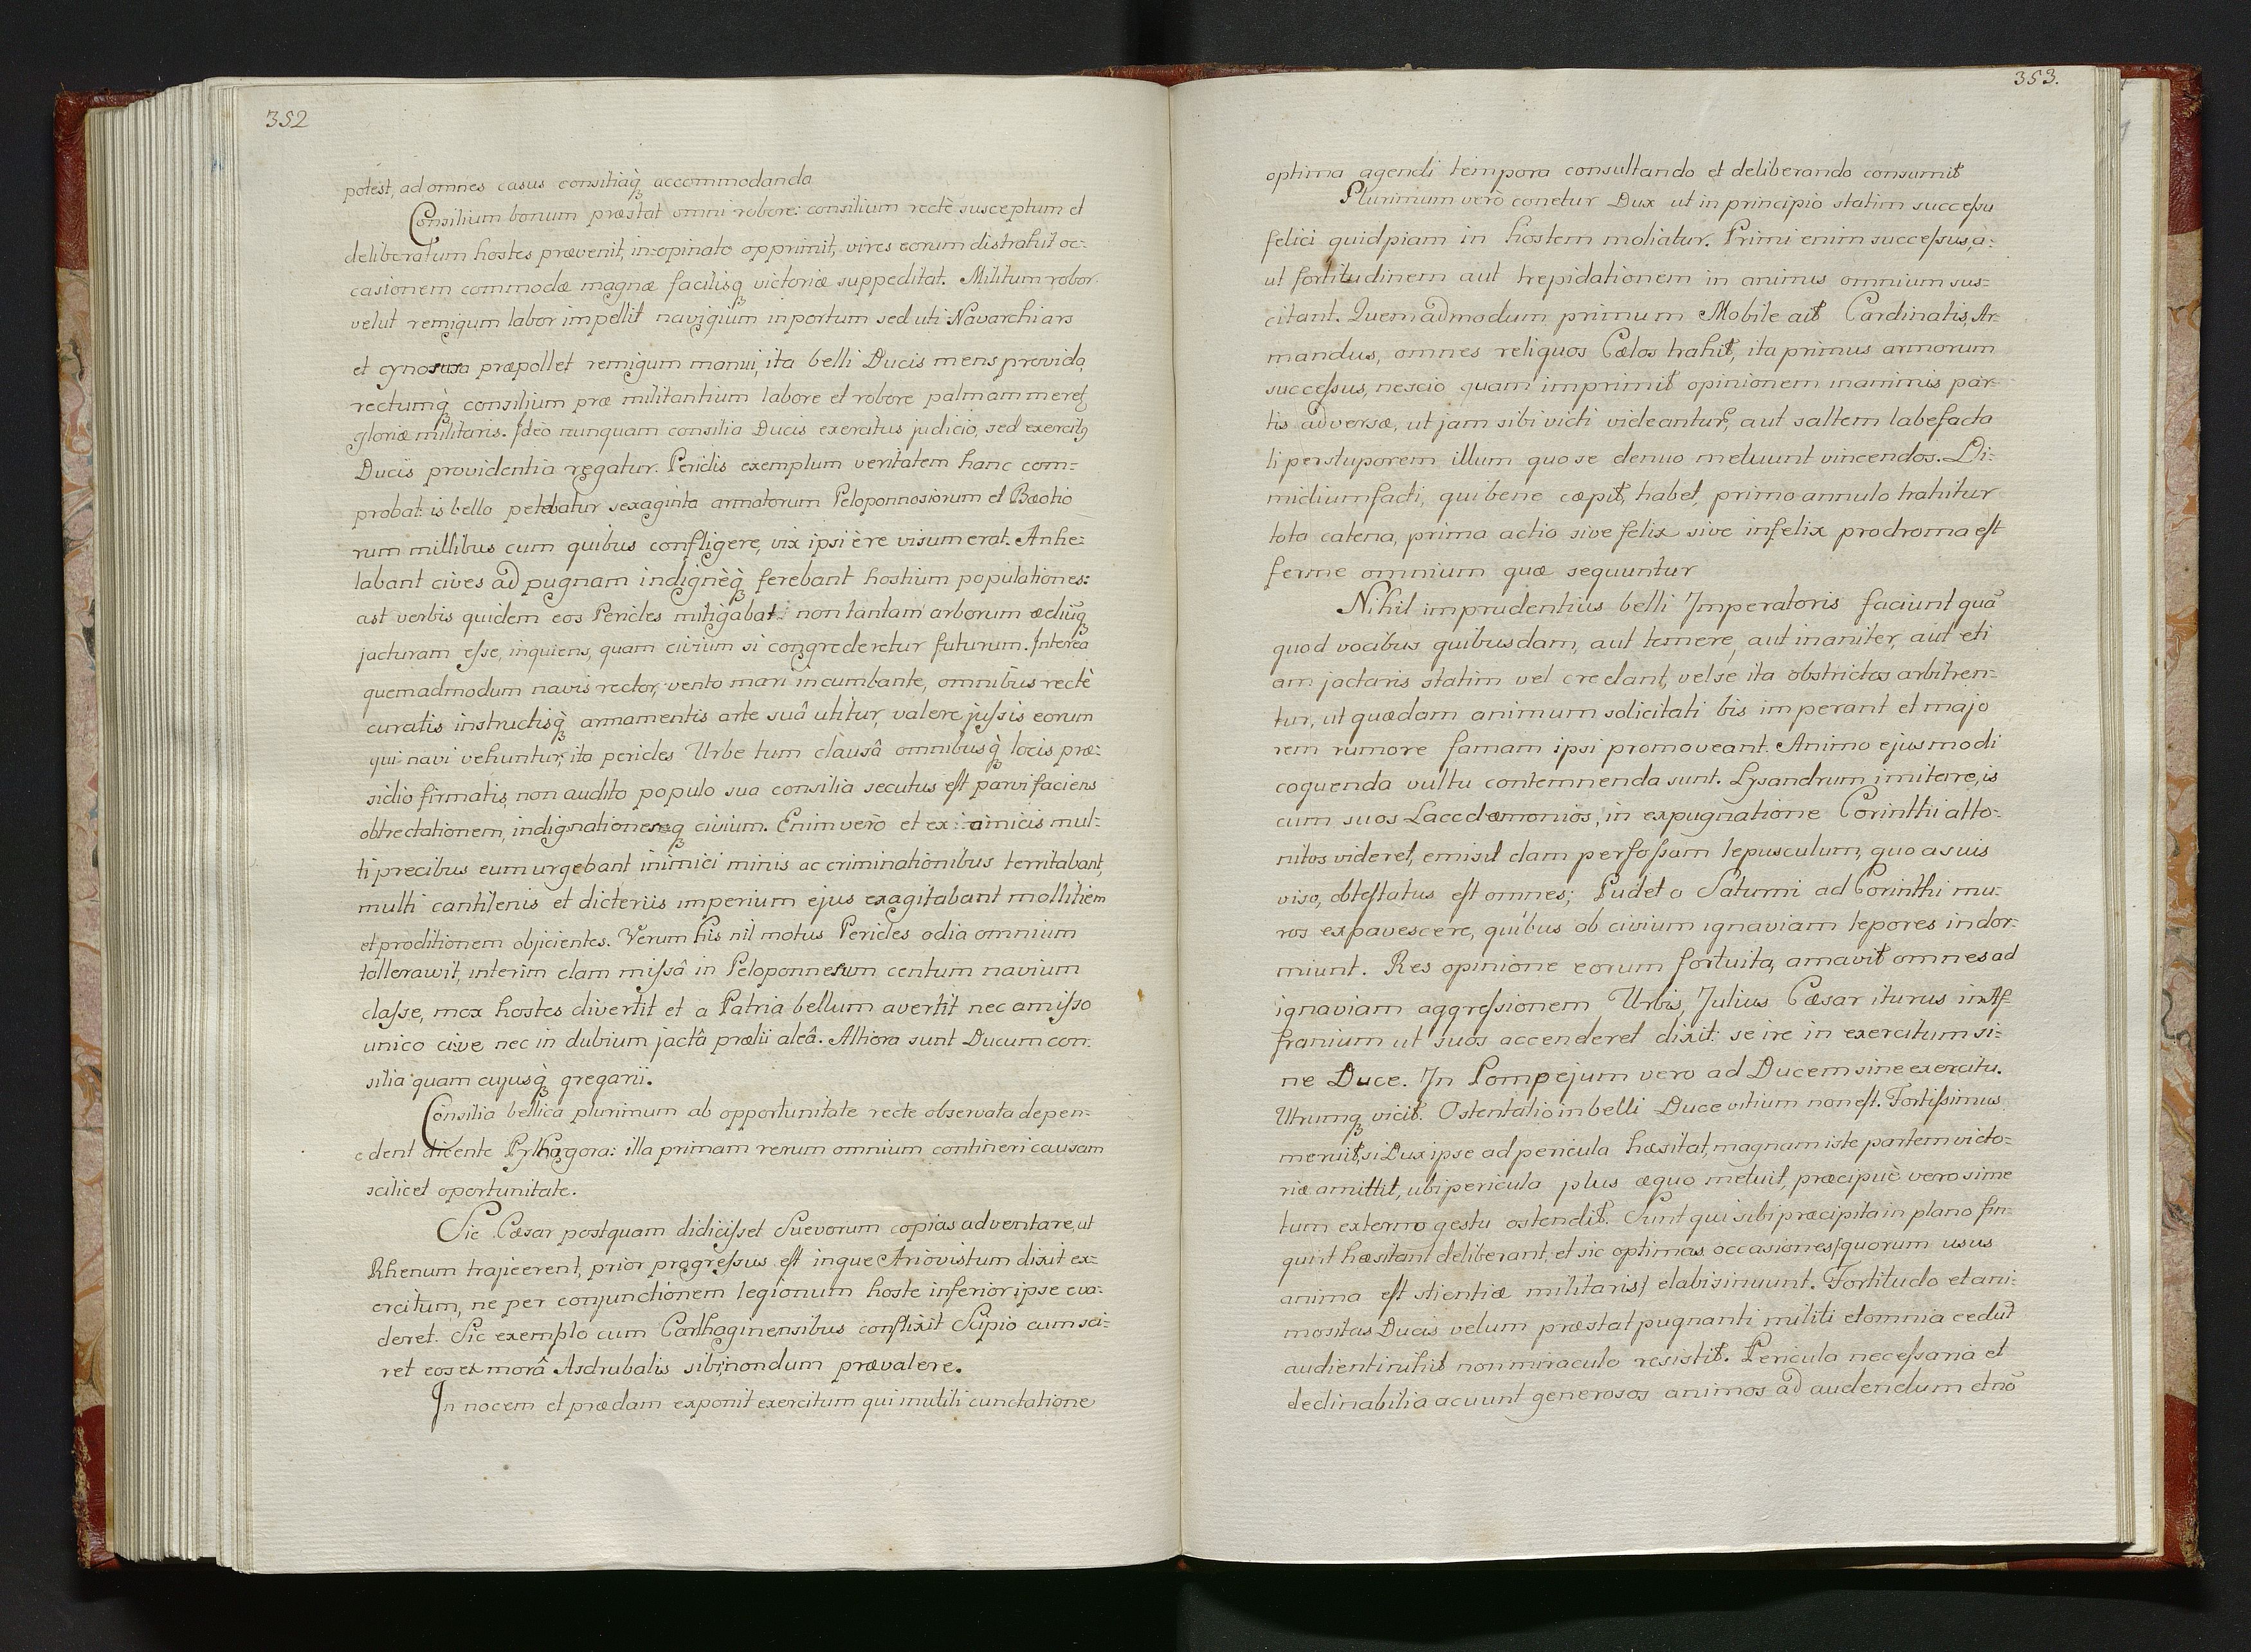 352
potest, ad omnes casus consiliaq̀ʒ accommodanda
Consilium bonum præstat omni robore: consilium rectè susceptum et
deliberatum hostes prævenit, in-opinate opprimit, vires eorum distrahit oc-
casionem commodæ magnæ facilisqʒ victoriæ suppeditat. Militum robor
velut remigum labor impellit navigium in portum sed uti Navarchi ars
et cynosura præpollet remigum manui, ita belli Ducis mens provida,
rectumq̀ʒ consilium præ militantium labore et robore palmam meret
gloriæ militaris. Ideo nunquam consilia Ducis exercitus judicio, sed exercitꝰ
Ducis providentia regatur. Periclis exemplum veritatem hanc com-
probat: is bello petebatur sexaginta armatorum Peloponnosiorum et Bæotio
rum millibus cum quibus confligere, vix ipsi ère visum erat. Anhe-
labant cives ad pugnam indignèq̀ʒ ferebant hostium populationes:
ast verbis quidem eos Pericles mitigabat: non tantam arborum ædiūqʒ
jacturam esse, inquiens, quam civium si congrederetur futurum. Interea
quemadmodum navis rector, vento mari incumbante, omnibus rectè
curatis instructisq̀ʒ armamentis arte suâ utitur, valere jussis eorum
qui navi vehuntur, ita pericles Urbe tum clausâ omnibusq̀ʒ locis præ-
sidio firmatis, non audito populo sua consilia secutus est parvi faciens
obtrectationem, indignationemqʒ civium. Enimverò et ex amicis mul-
ti precibus eum urgebant inimici minis ac criminationibus territabant,
multi cantilenis et dicteriis imperium ejus exagitabant mollitiem
et proditionem objicientes. Verum his nil motus Pericles odia omnium
tollerawit, interim clam missâ in Peloponnesum centum navium
classe, mox hostes divertit et a Patria bellum avertit nec amisso
unico cive nec in dubium jactâ prælii aleâ. Altiora sunt Ducum con-
silia quam cujusq̀ʒ gregarii.
Consilia bellica plurimum ab opportunitate recte observata depen-
dent dicente Pythagora: illa primam rerum omnium contineri causam
scilicet oportunitate.
Sic Cæsar postquam didicisset Suevorum copias adventare, ut
Rhenum trajicerent, prior progressus est inque Ariovistum dixit ex-
ercitum, ne per conjunctionem legionum hoste inferior ipse eva-
deret. Sic exemplo cum Carthaginensibus conflixit Scipio cum sci-
ret eos ex morâ Asdrubalis sibi, nondum prævalere.
In nocem et prædam exponit exercitum qui inutili cunctatione
353.
optima agendi tempora consultando et deliberando consumit
Plurimum verò conetur Dux ut in principio statim successu
felici quidpiam in hostem moliatur. Primi enim successus, a-
ut fortitudinem aut trepidationem in animus omnium sus-
citant. Quemadmodum primum Mobile ait Cardinatis, Ar-
mandus, omnes reliquos Cælos trahit, ita primus armorum
successus, nescio quam imprimit opinionem inanimis par-
tis adversæ, ut jam sibi victi videantur, aut saltem labefacta
ti perstuporem illum quo se denuo metuunt vincendos. Di-
midium facti, qui bene cæpit, habet, primo annulo trahitur
tota catena, prima actio sive felix sive infelix prodroma est
ferme omnium quæ sequuntur
Nihil imprudentius belli Imperatoris faciunt quā
quod vocibus quibusdam, aut temere, aut inaniter, aut eti
am jactaris statim vel credant, vel se ita obstrictos arbitren-
tur, ut quædam animum solicitati bis imperant et majo
rem rumore famam ipsi promoveant. Animo ejusmodi
coquenda vultu contemnenda sunt. Lysandrum imitare, is
cum suos Lacedæmonios, in expugnatione Corinthi atto-
nitos videret, emisit clam perfossam lepusculum, quo a suis
viso, obtestatus est omnes; Pudet o Saturni ad Corinthi mu-
ros expavescere, quibus ob civium ignaviam lepores indor-
miunt. Res opinione eorum fortuita, amavit omnes ad
ignaviam aggressionem Urbis, Julius Cæsar iturus in Af-
franium ut suos accenderet dixit: se ire in exercitum si-
ne Duce. In Pompejum vero ad Ducem sine exercitu.
Utrumqʒ vicit. Ostentatio in belli Duce vitium non est. Fortissimus
meruit, si Dux ipse ad pericula hæsitat, magnam iste partem victo-
riæ amittit, ubi pericula plus æquo metuit, præcipuè vero si me
tum externo gestu ostendit. Sunt qui sibi præcipita in plano fin-
gunt hæsitant deliberant, et sic optimas occasiones /quorum usus
anima est stientiæ militaris/ elabi sinuunt. Fortitudo et ani-
mositas Ducis velum præstat pugnanti militi et omnia cedūt
audienti nihil non miraculo resistit. Pericula necessaria et
declinabilia acuunt generosos animos ad audendum et nō